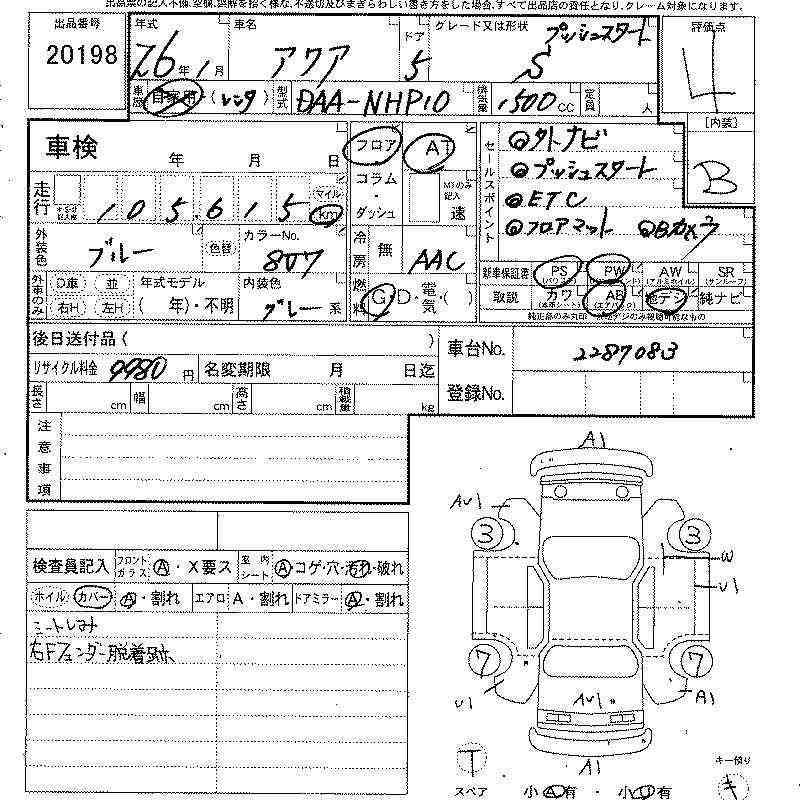 出品票の記入不備、空欄、誤解を招く様な、不適切及びまぎらわしい書き方をした場合、すべて出品店の責任となり、クレーム対象になります。
出品番号 20198
年式 26年 1月 車名 アクア ドア 5 グレード又は形状 プッシュスタート S
評価点 4
車歴 自家用・(レンタ) 型式 DAA-NHP10 排気量 1500CC 定員 人
[内装] B
車検 年 月 日
フロア AT
コラム・ダッシュ M車のみ記入 速
セールスポイント
外ナビ
プッシュスタート
ETC
フロアマット Bカメラ
走行 105,615 マイル km
外装色 ブルー 色替 カラーNo. 8U7
冷房 無 AAC
外車のみ D車 並 右H 左H 年式モデル ( 年)・不明 内装色 グレー系
燃料 G・D・電気・( )
新車保証書 PS PW AW (アルミホイル) SR (サンルーフ)
取説 カワ AB (エアバッグ) 地デジ 純ナビ
後日送付品( )
車台No. 2287083
リサイクル料金 9980円 名変期限 月 日迄
登録No.
長さ cm 幅 cm 高さ cm 積載量 kg
注意事項
検査員記入 フロントガラス A・X要ス 室内シート A・コゲ・穴・汚れ・破れ
ホイル カバー A・割れ エアロ A・割れ ドアミラー A・割れ
シートしみ
右Fフェンダー脱着跡
A1
AU1
3 3
W
U1
7 7
U1 AU1 A1
A1
T
スペア
小 A 有 ・ 小 U 有
キー預り
キ